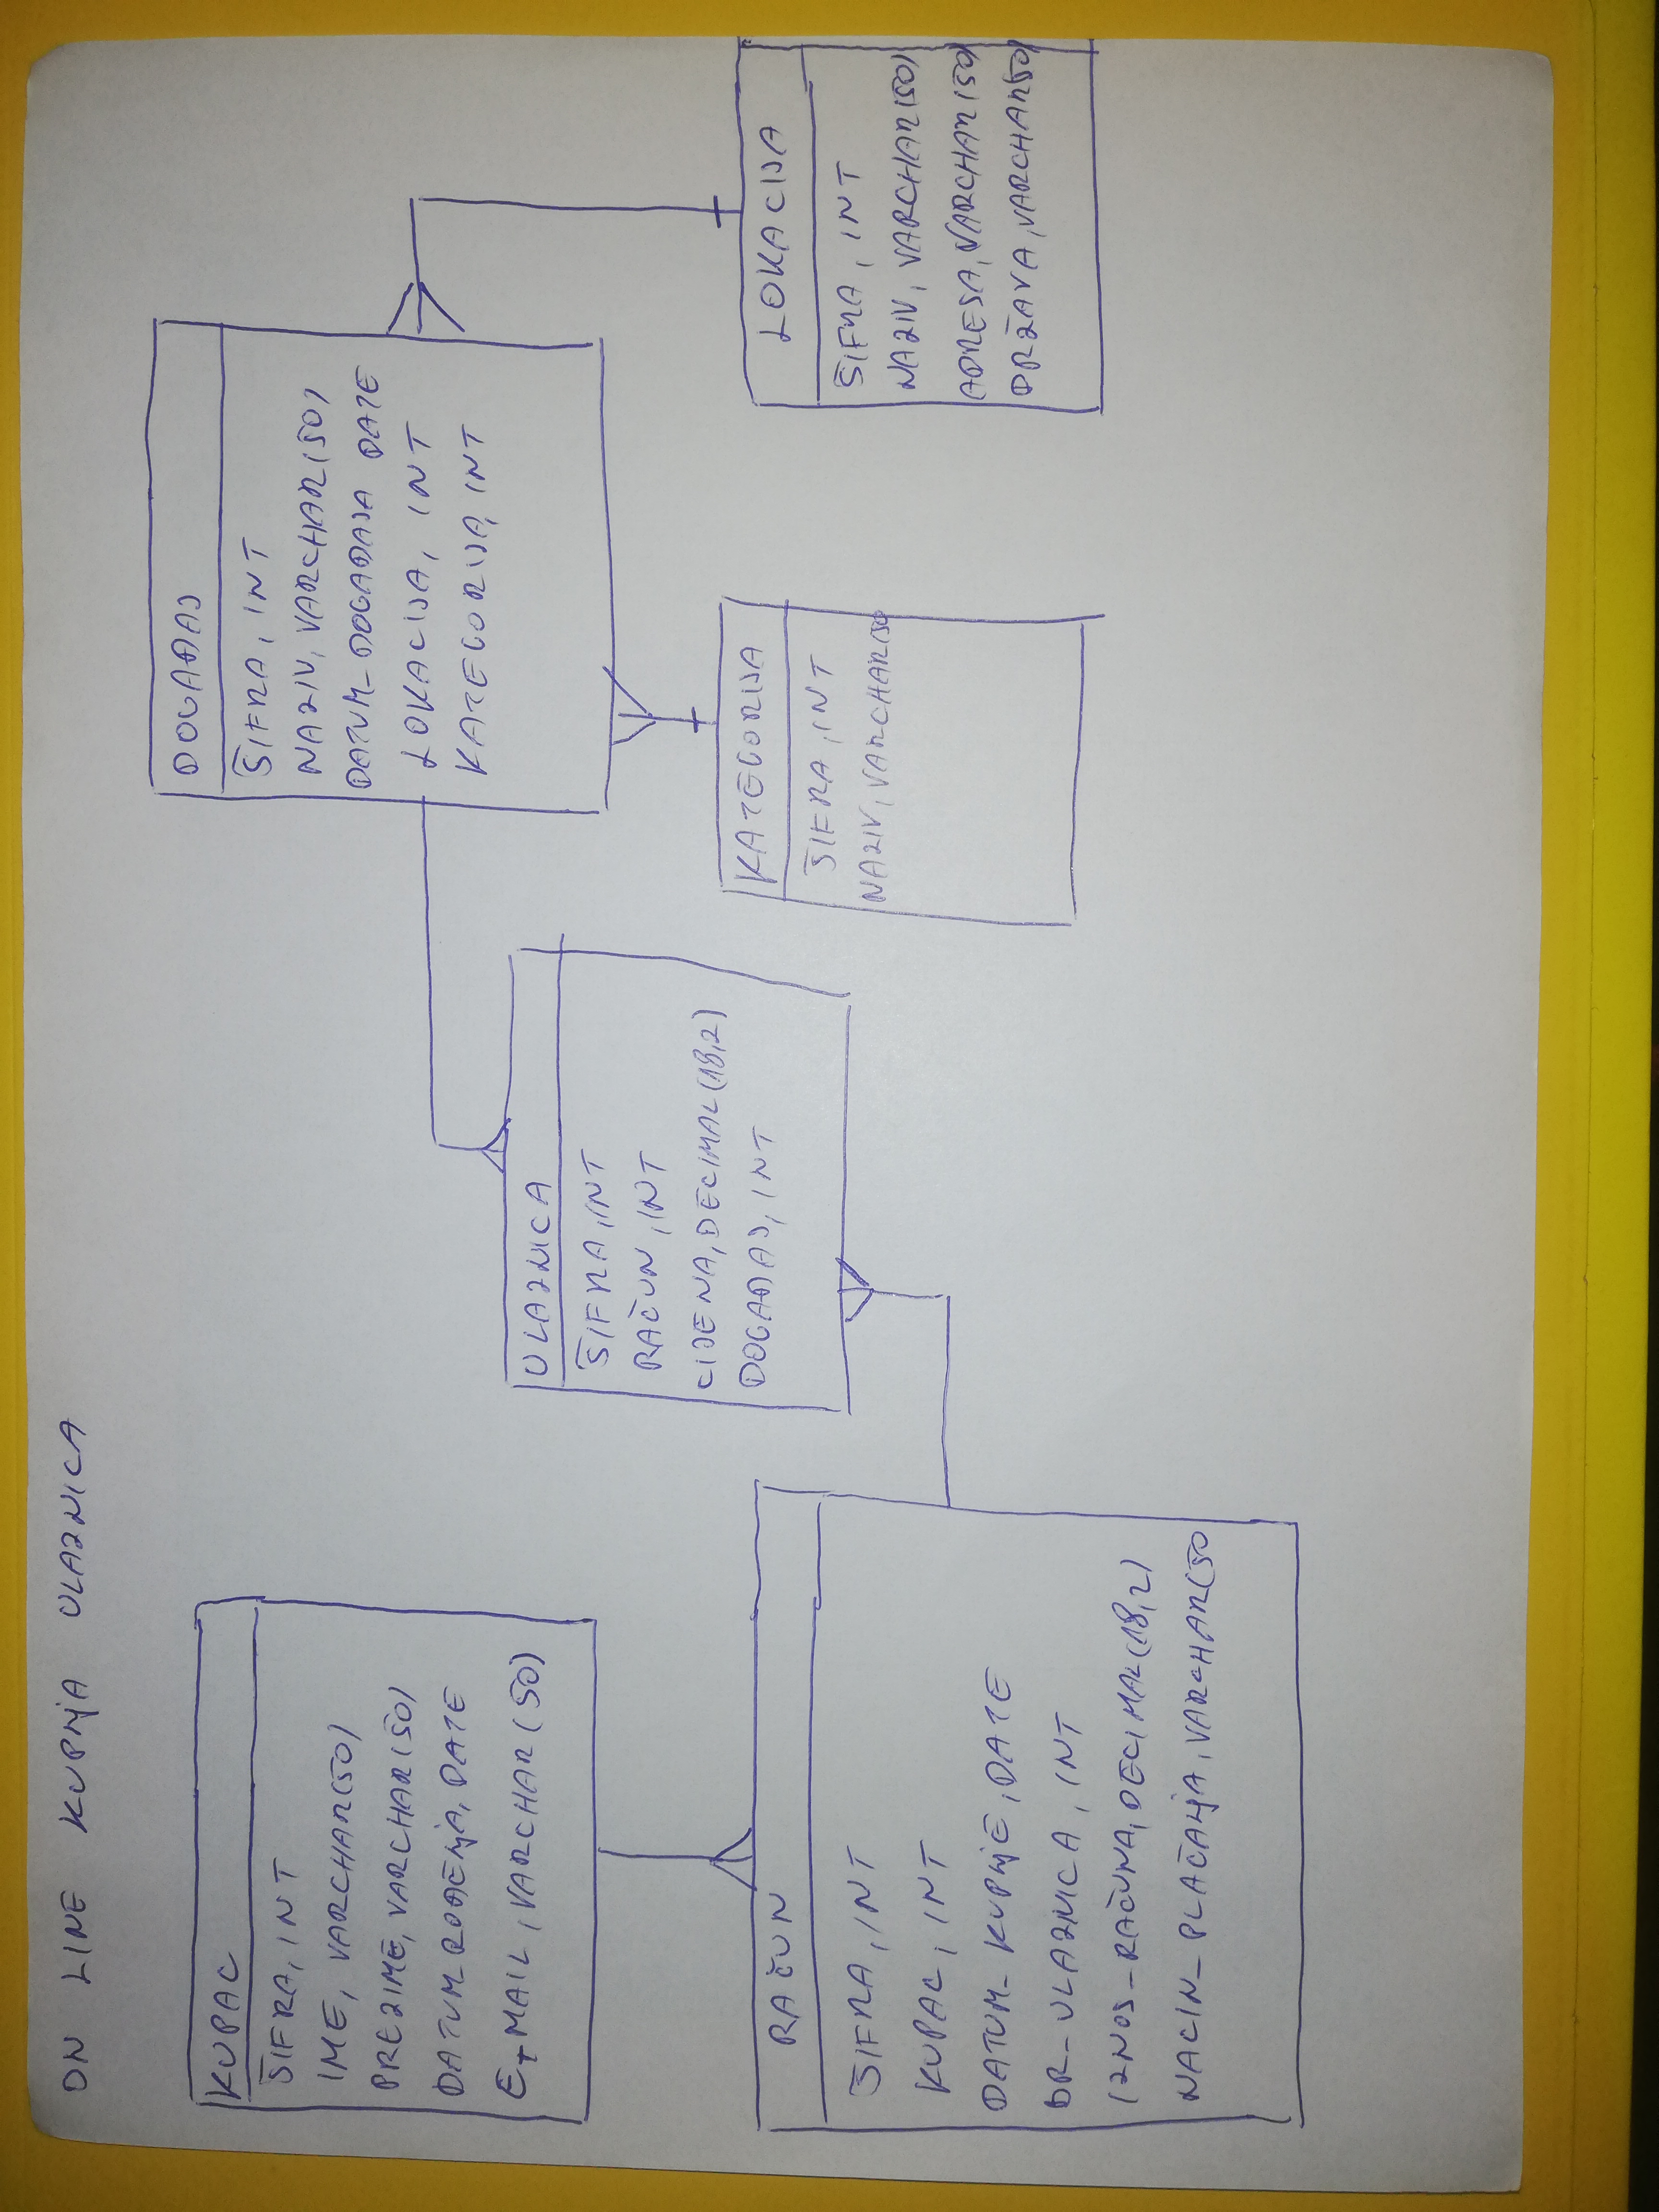 ON LINE KUPNJA ULAZNICA
KUPAC
ŠIFRA, INT
IME, VARCHAR(50)
PREZIME, VARCHAR(50)
DATUM_ROĐENJA, DATE
E-MAIL, VARCHAR(50)
RAČUN
ŠIFRA, INT
KUPAC, INT
DATUM_KUPNJE, DATE
BR_ULAZNICA, INT
IZNOS_RAČUNA, DECIMAL(18,2)
NACIN_PLAČANJA, VARCHAR(50
ULAZNICA
ŠIFRA, INT
RAČUN, INT
CIJENA, DECIMAL(18,2)
DOGAĐAJ, INT
DOGAĐAJ
ŠIFRA, INT
NAZIV, VARCHAR(50)
DATUM_DOGAĐAJA DATE
LOKACIJA, INT
KATEGORIJA, INT
KATEGORIJA
ŠIFRA, INT
NAZIV, VARCHAR(50
LOKACIJA
ŠIFRA, INT
NAZIV, VARCHAR(50)
ADRESA, VARCHAR(50)
DRŽAVA, VARCHAR(50)